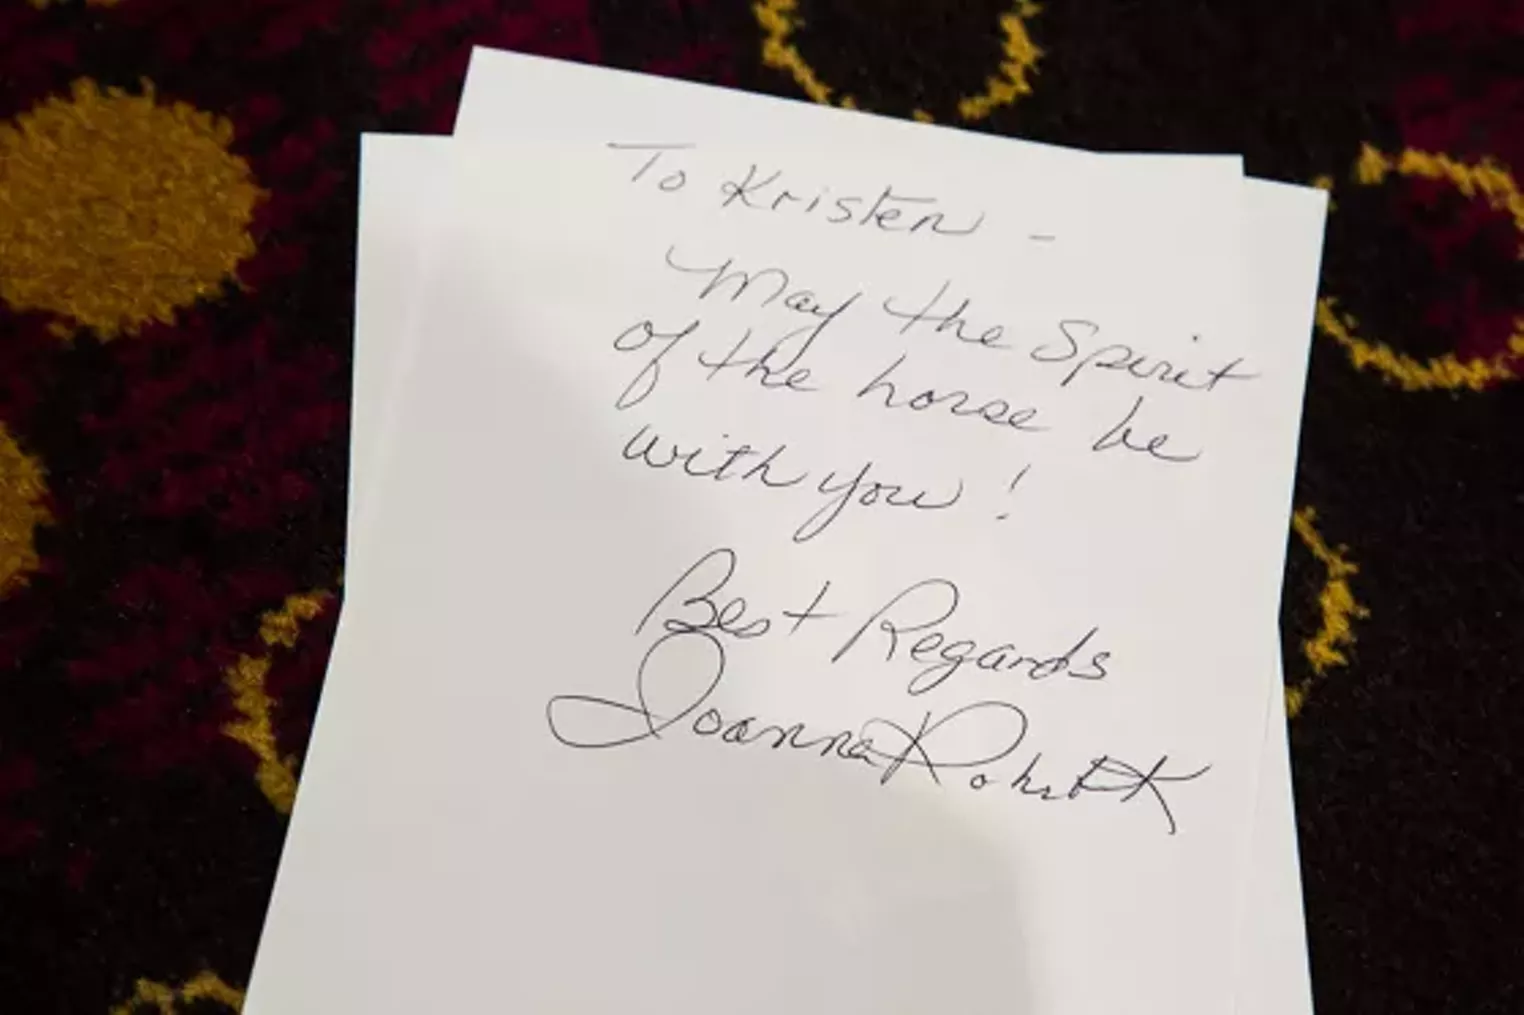 To Kristen -
May the Spirit
of the horse be
with you!
Best Regards
Joanna